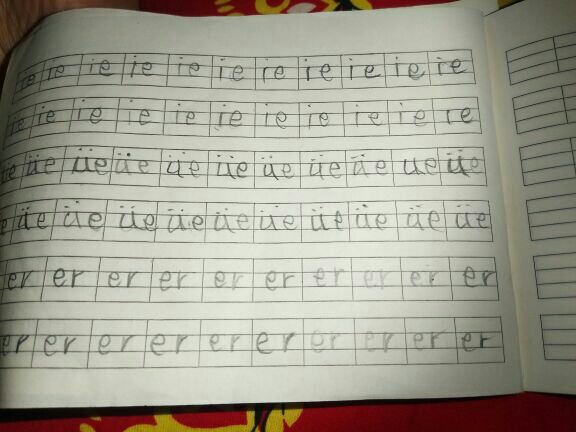 ie ie ie ie ie ie ie ie ie ie ie
ie ie ie ie ie ie ie ie ie ie ie
üe üe üe üe üe üe üe üe ue üe
üe üe üe üe üe üe üe üe üe üe
er er er er er er er er er er
er er er er er er er er er er